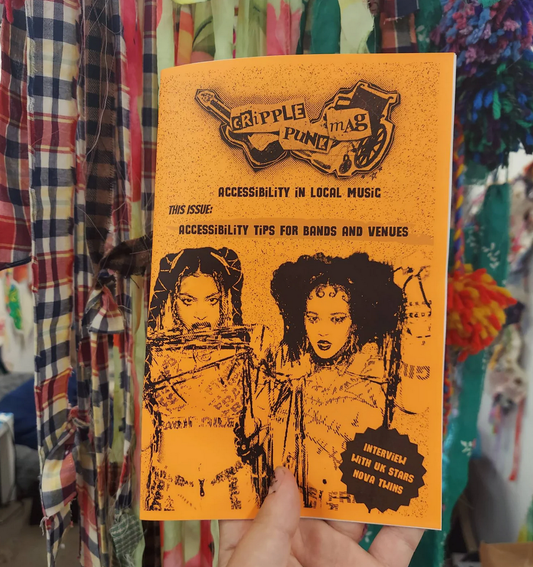 CRiPPLE
PUNK mAG
ACCESSIBILITY IN LOCAL MUSIC
THIS ISSUE:
ACCESSIBILITY TIPS FOR BANDS AND VENUES
INTERVIEW
WITH UK STARS
NOVA TWINS